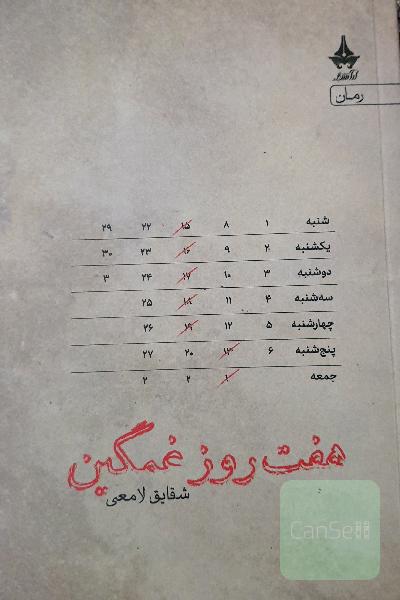 رمان
شنبه ۱ ۸ ۱۵ ۲۲ ۲۹
یکشنبه ۲ ۹ ۱۶ ۲۳ ۳۰
دوشنبه ۳ ۱۰ ۱۷ ۲۴ ۳
سه‌شنبه ۴ ۱۱ ۱۸ ۲۵
چهارشنبه ۵ ۱۲ ۱۹ ۲۶
پنج‌شنبه ۶ ۱۳ ۲۰ ۲۷
جمعه ۱ ۲ ۲
هفت روز غمگین
شقایق لامعی
CanSell